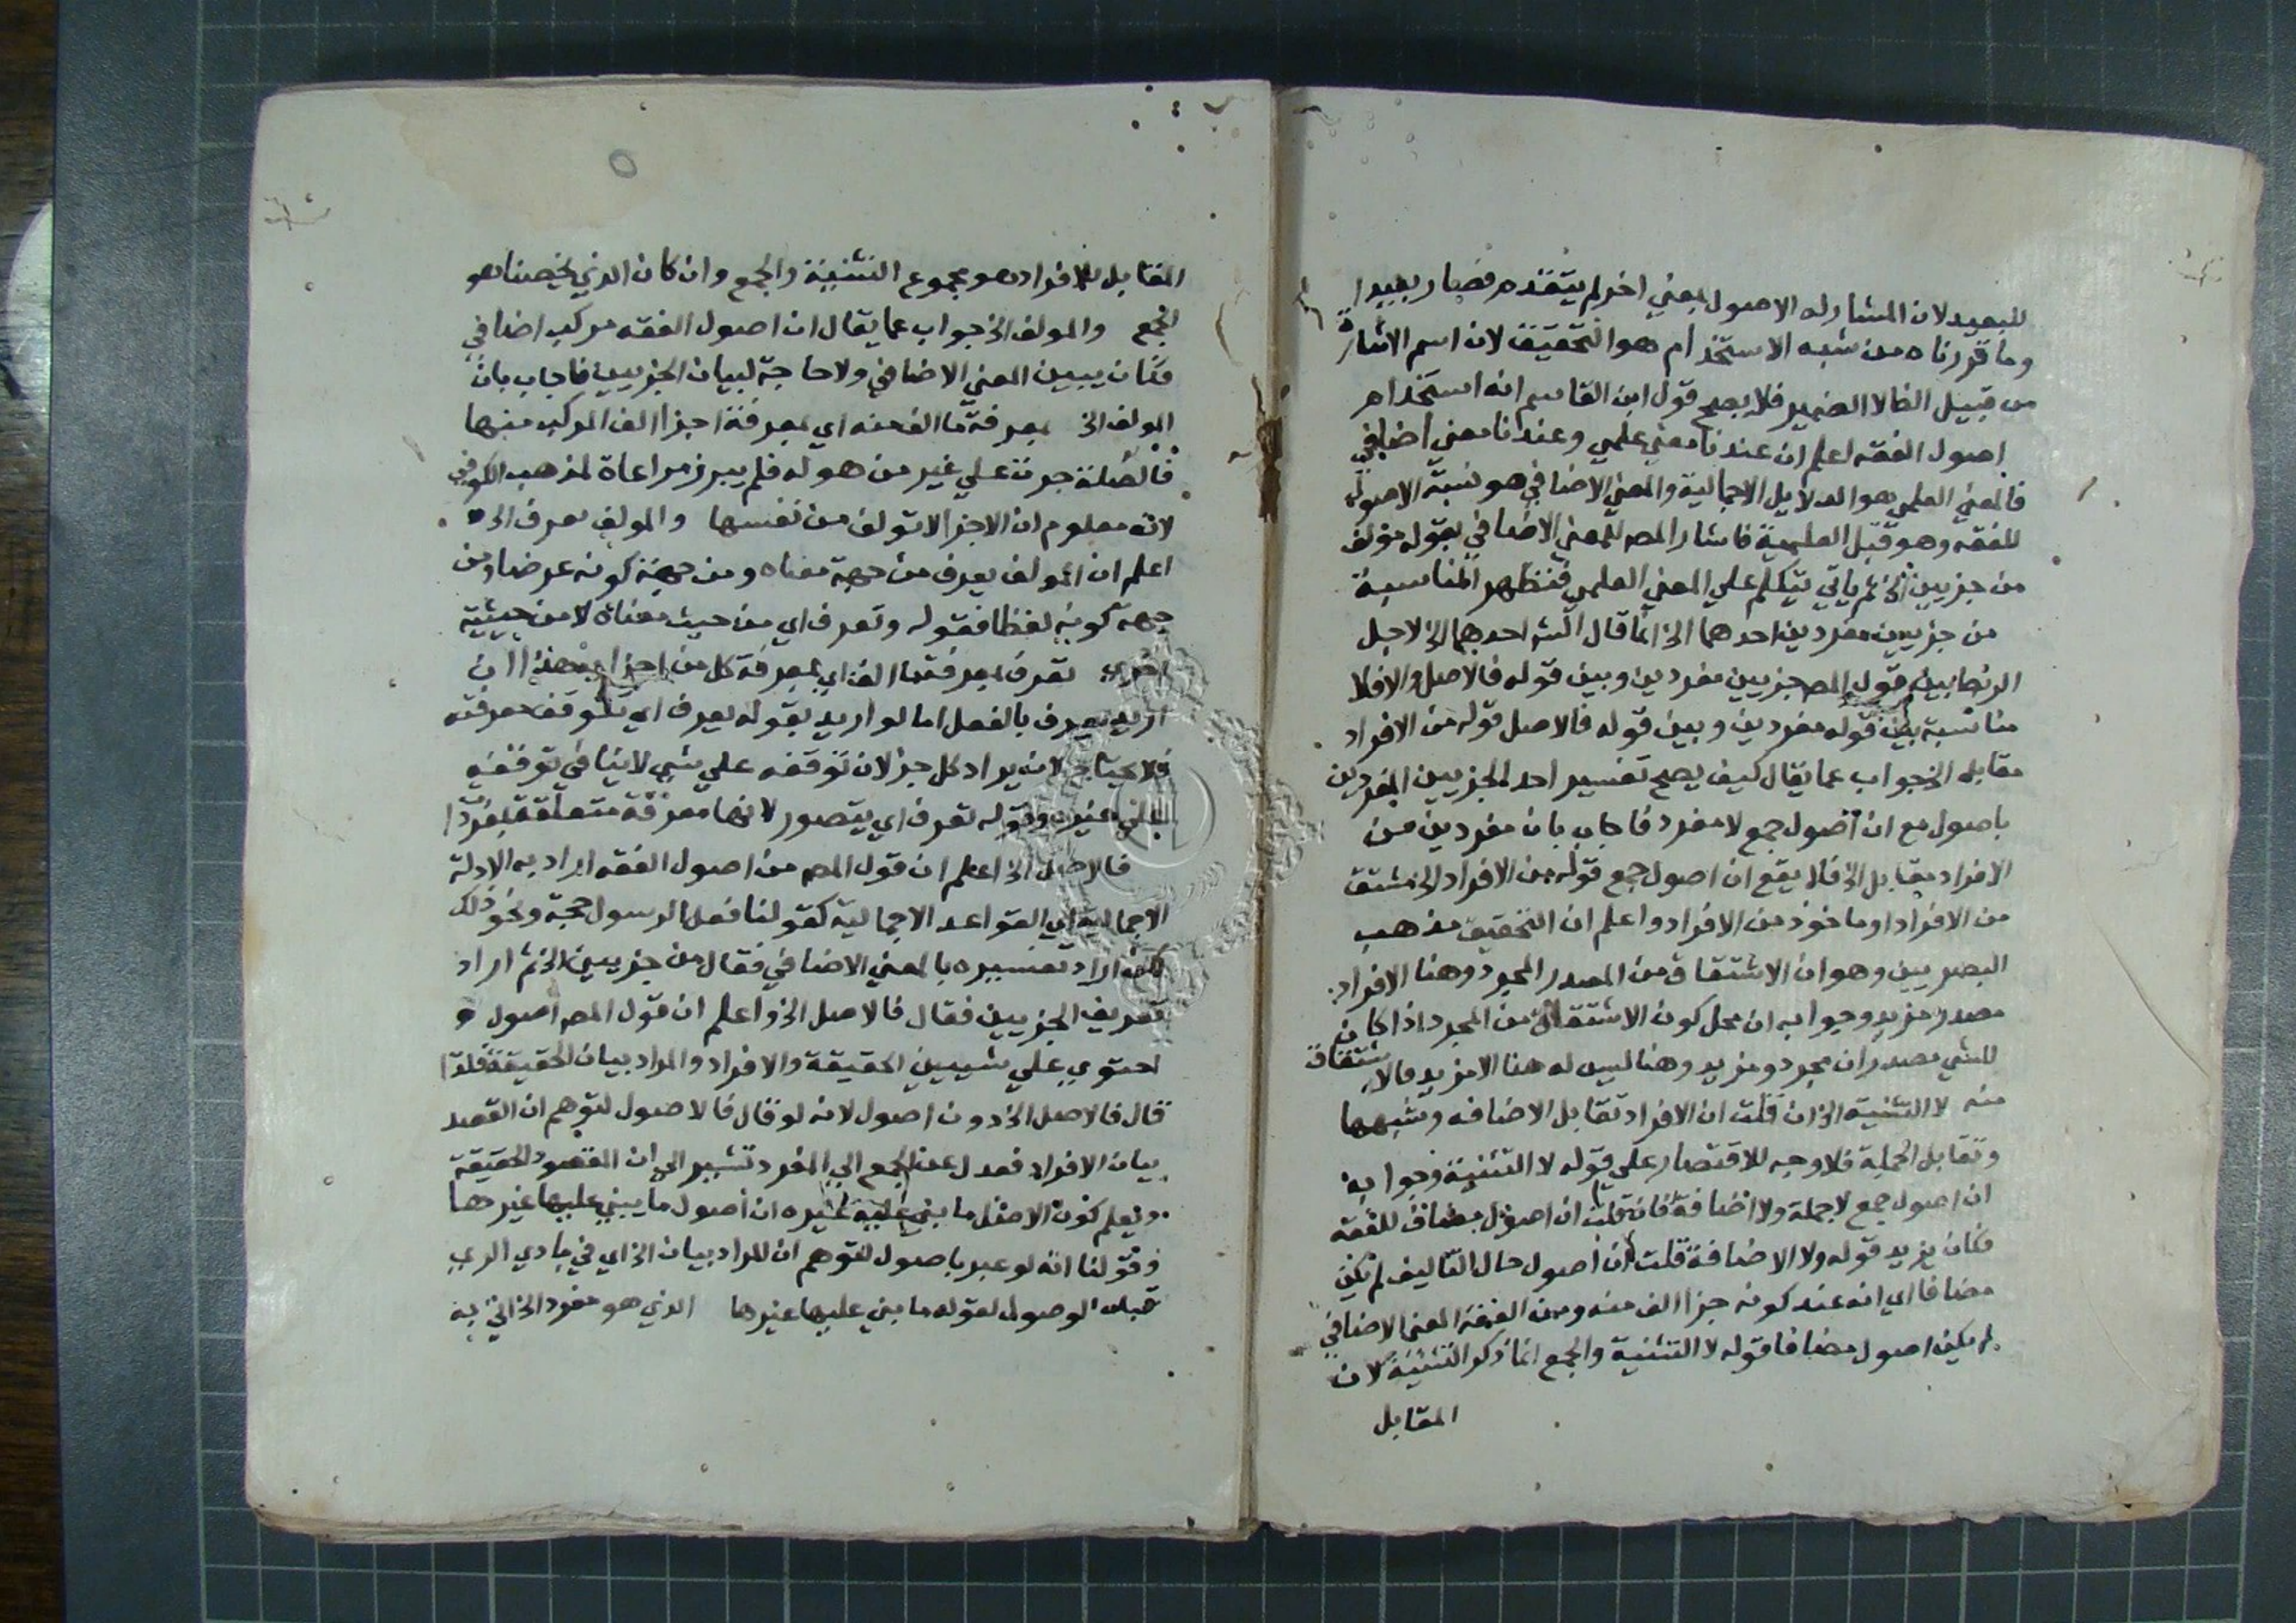 للبعيد لان المشار له الاصول بمعني اخر لم يتقدم فصار بعيدا
وما قررناه من شبه الاستخدام هو التحقيق لان اسم الاشارة
من قبيل الظاهر لا الضمير فلا يصح قول ابن القاسم انه استخدام
اصول الفقه اعلم ان عندنا معني علمي وعندنا معني اضافي
فالمعني العلمي هو الدلايل الاجمالية والمعني الاضافي هو نسبة الاصول
للفقه وهو قبل العلمية فاشار المص للمعني الاضافي بقوله مولف
من جزيين الخ ثم ياتي يتكلم علي المعني العلمي فتظهر المناسبة
من جزيين مفردين احدهما الخ انما قال الش احدهما الخ لاجل
الارتباط بين قول المص جزيين مفردين وبين قوله فالاصل والا فلا
مناسبة بين قوله مفردين وبين قوله فالاصل قوله من الافراد
مقابله الخ جواب عما يقال كيف يصح تفسير احد الجزيين المفردين
باصول مع ان اصول جمع لا مفرد فاجاب بان مفردين من
الافراد مقابل الخ فلا يقع ان اصول جمع قوله من الافراد الخ مشتق
من الافراد او ماخوذ من الافراد واعلم ان التحقيق مذهب
البصريين وهو ان الاشتقاق من المصدر المجرد وهنا الافراد
مصدر مزيد وجوابه ان محل كون الاشتقاق من المجرد اذا كان
للشي مصدران مجرد ومزيد وهنا ليس له هنا الا مزيد فالاشتقاق
منه لا التثنية الخ ان قلت ان الافراد تقابل الاضافه وشبهها
وتقابل الجملة فلا وجه للاقتصار علي قوله لا التثنية وجوابه
ان اصول جمع لا جملة ولا اضافة فان قلت ان اصول مضاف للفقه
فكان يزيد قوله ولا الاضافة قلت ان اصول حال التاليف لم تكن
مضافا اي انه عند كونه جزا الف منه ومن الفقه المعني الاضافي
لم يكن اصول مضافا قوله لا التثنية والجمع انما ذكر التثنية لان
المقابل
المقابل للافراد هو مجموع التثنية والجمع وان كان الذي يخصنا هو
الجمع والمولف الخ جواب عما يقال ان اصول الفقه مركب اضافي
فكان يبين المعني الاضافي ولا حاجة لبيان الجزيين فاجاب بان
المولف الخ بمعرفة ما الف منه اي بمعرفة اجزا الف المركب منها
فالصلة جرت علي غير من هو له فلم يبرز مراعاة لمذهب الكوفي
لانه معلوم ان الاجزا لا تولف من نفسها والمولف يعرف الخ
اعلم ان المولف يعرف من جهة معناه ومن جهة كونه عرضا ومن
جهة كونه لفظا فقوله وتعرف اي من حيث معناه لا من حيثية
اخري تعرف بمعرفة ما الف اي بمعرفة كل من اجزا ان
اريد يعرف بالفعل اما لو اريد بقوله يعرف اي تتوقف معرفته
فلا يحتاج لانه يراد كل جز لان توقفه علي شي لا ينافي توقفه
علي غيره وقوله تعرف اي يتصور لانها معرفة متعلقة بمفرد
فالاصل الخ اعلم ان قول المص من اصول الفقه اراد به الادلة
الاجمالية اي القواعد الاجمالية كقولنا فعل الرسول حجة ونحو ذلك
لكن اراد تفسيره بالمعني الاضافي فقال من جزيين الخ ثم اراد
تعريف الجزيين فقال فالاصل الخ واعلم ان قول المص اصول
احتوي علي شيين الحقيقة والافراد والمراد بيان الحقيقة فلذا
قال فالاصل الخ دون اصول لانه لو قال فالاصول لتوهم ان القصد
بيان الافراد فعدل عن الجمع الي المفرد تشير الي ان المقصود الحقيقة
ويعلم كون الاصل ما بني عليه غيره ان اصول ما يبني عليها غيرها
وقولنا انه لو عبر باصول لتوهم ان المراد بيان الخ اي في بادي الراي
قبل الوصول لقوله ما بني عليها غيرها الذي هو مفرد الخ اتي به